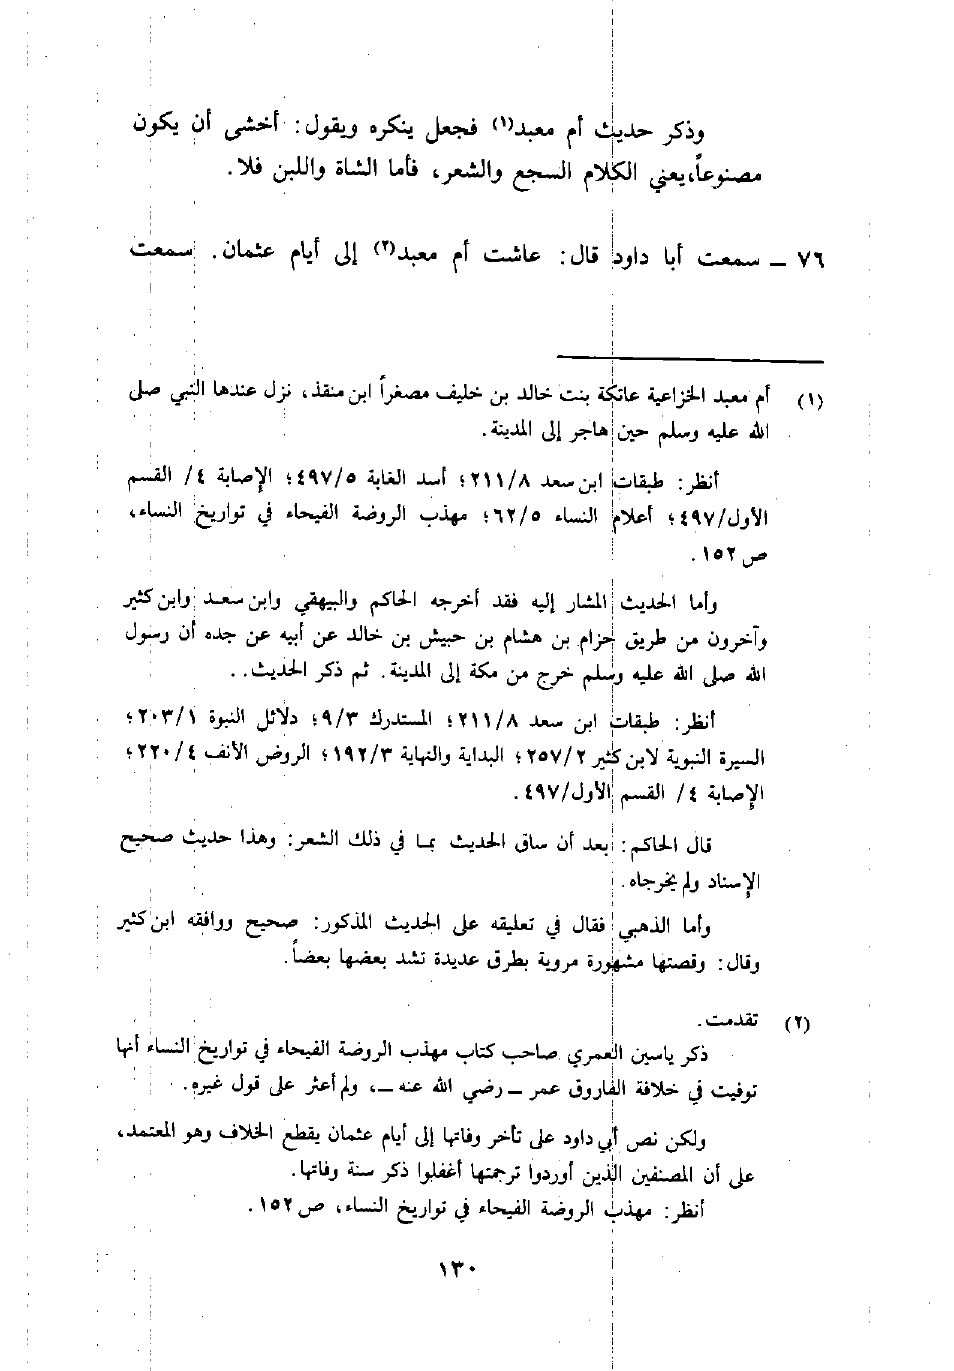 وذكر حديث أم معبد(١) فجعل ينكره ويقول: أخشى أن يكون
مصنوعاً،يعني الكلام السجع والشعر، فأما الشاة واللبن فلا.
٧٦ – سمعت أبا داود قال: عاشت أم معبد(٢) إلى أيام عثمان. سمعت
(١) أم معبد الخزاعية عاتكة بنت خالد بن خليف مصغراً ابن منقذ، نزل عندها النبي صلى
الله عليه وسلم حين هاجر إلى المدينة.
أنظر: طبقات ابن سعد ٢١١/٨؛ أسد الغابة ٤٩٧/٥؛ الإصابة ٤/ القسم
الأول/٤٩٧؛ أعلام النساء ٦٢/٥؛ مهذب الروضة الفيحاء في تواريخ النساء،
ص ١٥٢.
وأما الحديث المشار إليه فقد أخرجه الحاكم والبيهقي وابن سعد وابن كثير
وآخرون من طريق حزام بن هشام بن حبيش بن خالد عن أبيه عن جده أن رسول
الله صلى الله عليه وسلم خرج من مكة إلى المدينة. ثم ذكر الحديث..
أنظر: طبقات ابن سعد ٢١١/٨؛ المستدرك ٩/٣؛ دلائل النبوة ٢٠٣/١؛
السيرة النبوية لابن كثير ٢٥٧/٢؛ البداية والنهاية ١٩٢/٣؛ الروض الأنف ٢٢٠/٤؛
الإصابة ٤/ القسم الأول/٤٩٧.
قال الحاكم: بعد أن ساق الحديث بما في ذلك الشعر: وهذا حديث صحيح
الإسناد ولم يخرجاه.
وأما الذهبي فقال في تعليقه على الحديث المذكور: صحيح ووافقه ابن كثير
وقال: وقصتها مشهورة مروية بطرق عديدة تشد بعضها بعضاً.
(٢) تقدمت.
ذكر ياسين العمري صاحب كتاب مهذب الروضة الفيحاء في تواريخ النساء أنها
توفيت في خلافة الفاروق عمر – رضي الله عنه –، ولم أعثر على قول غيره.
ولكن نص أبي داود على تأخر وفاتها إلى أيام عثمان يقطع الخلاف وهو المعتمد،
على أن المصنفين الذين أوردوا ترجمتها أغفلوا ذكر سنة وفاتها.
أنظر: مهذب الروضة الفيحاء في تواريخ النساء، ص ١٥٢.
١٣٠